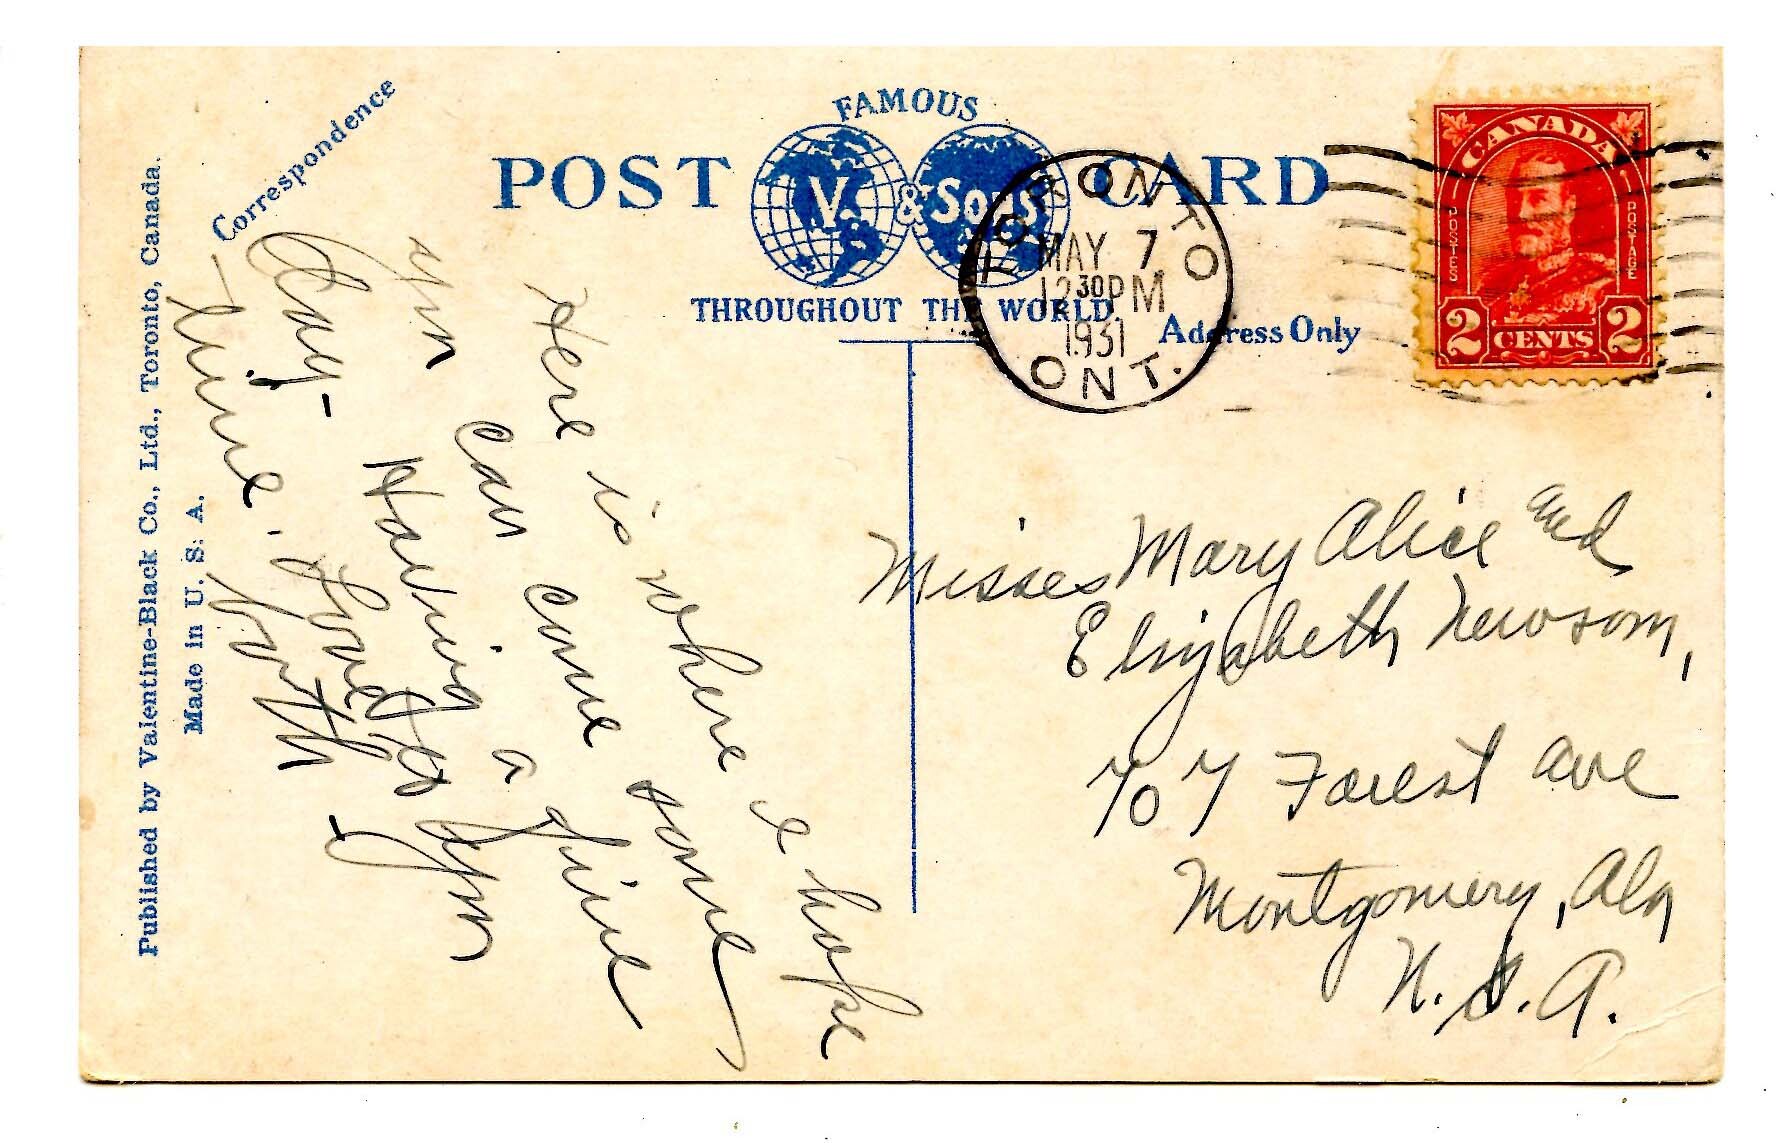 FAMOUS
POST CARD
V. & Sons
THROUGHOUT THE WORLD.
Correspondence
Address Only
Published by Valentine-Black Co., Ltd., Toronto, Canada.
Made in U. S. A.
TORONTO
MAY 7
12 30 PM
1931
ONT.
CANADA
POSTES POSTAGE
2 CENTS 2
Here is where I hope
you can come some
day - Having a fine
time. Love to you
both -
Misses Mary Alice and
Elizabeth Newsom,
707 Forest Ave
Montgomery, Ala
U. S. A.